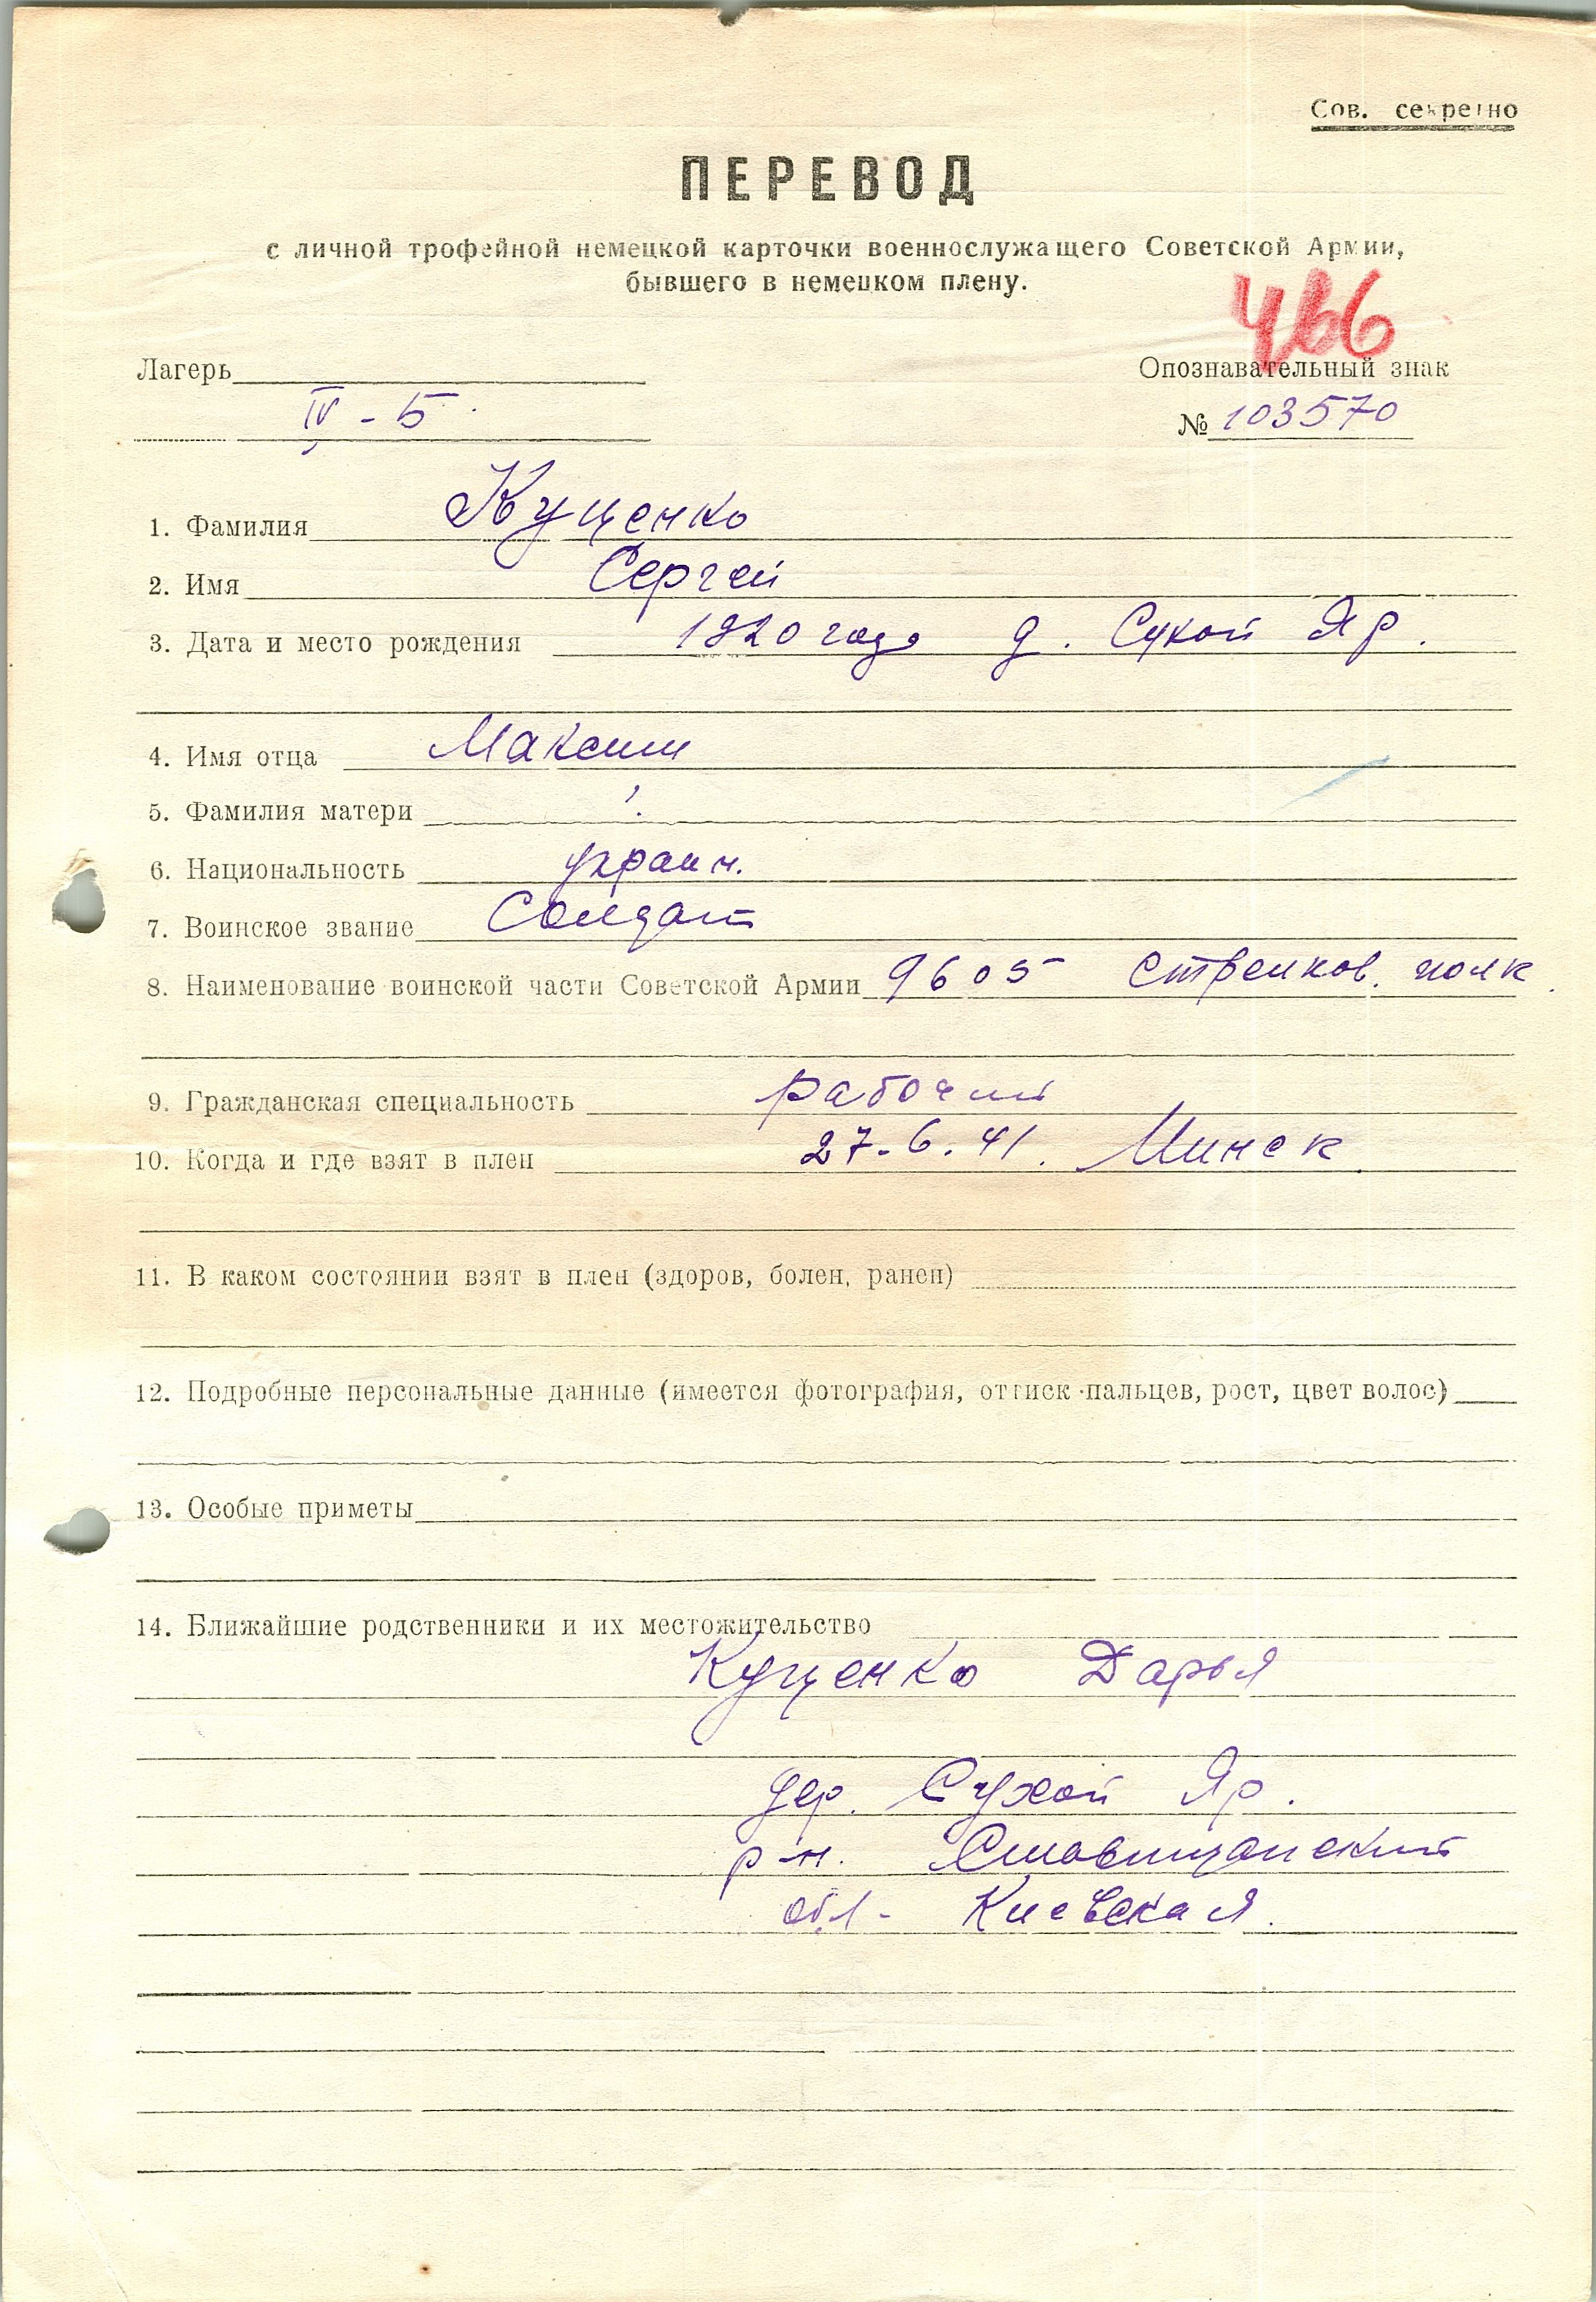 Сов. секретно
ПЕРЕВОД
с личной трофейной немецкой карточки военнослужащего Советской Армии,
бывшего в немецком плену.
466
Лагерь
Опознавательный знак
IV - Б.
№ 103570
1. Фамилия Куценко
2. Имя Сергей
3. Дата и место рождения 1920 года д. Сухой Яр.
4. Имя отца Максим
5. Фамилия матери
6. Национальность украин.
7. Воинское звание Солдат
8. Наименование воинской части Советской Армии 9605 стрелков. полк.
9. Гражданская специальность рабочий
10. Когда и где взят в плен 27.6.41. Минск.
11. В каком состоянии взят в плен (здоров, болен, ранен)
12. Подробные персональные данные (имеется фотография, оттиск пальцев, рост, цвет волос)
13. Особые приметы
14. Ближайшие родственники и их местожительство
Куценко Дарья
дер. Сухой Яр.
р-н. Ставищанский
обл- Киевская.